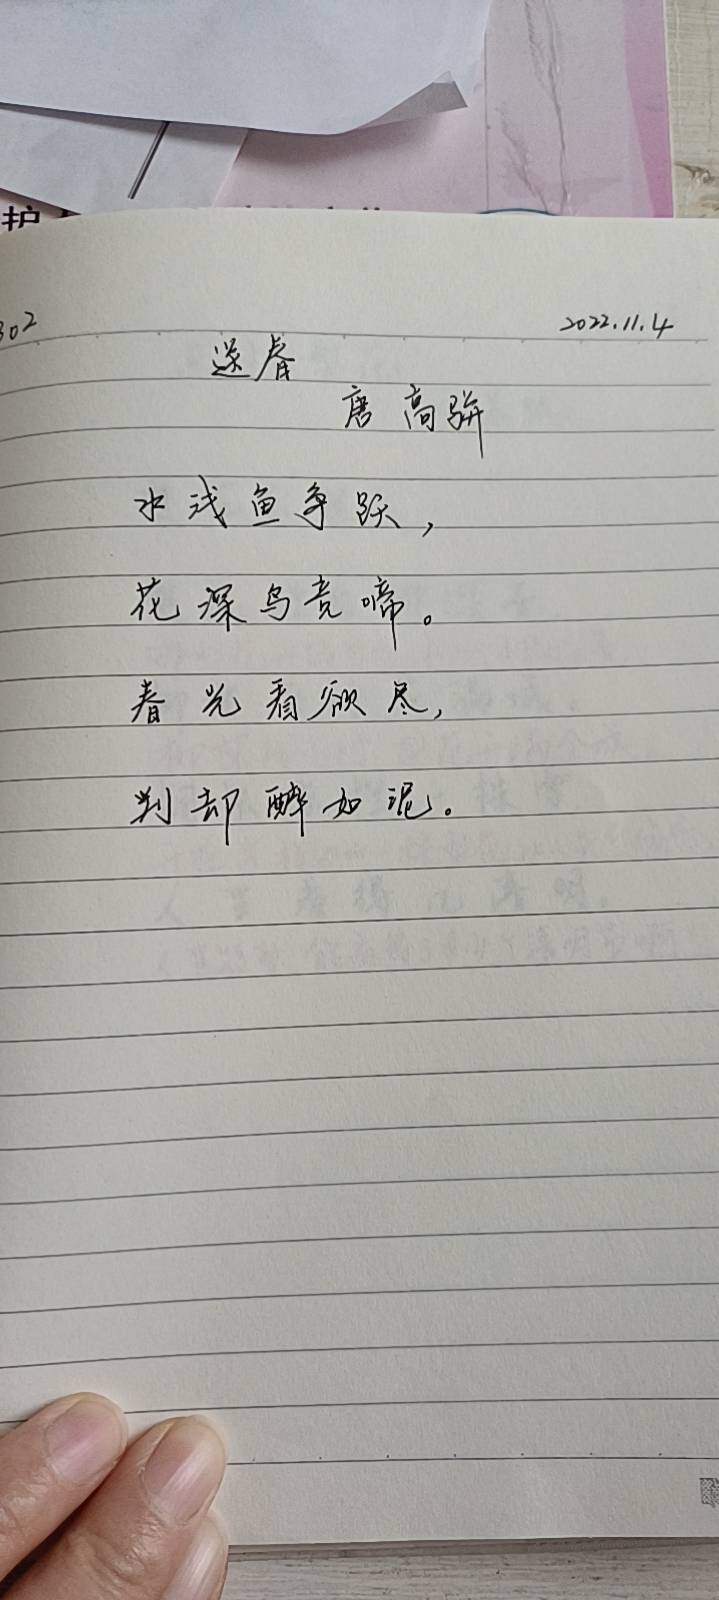 护
302
2022.11.4
送春
唐 高骈
水浅鱼争跃，
花深鸟竞啼。
春光看欲尽，
判却醉如泥。